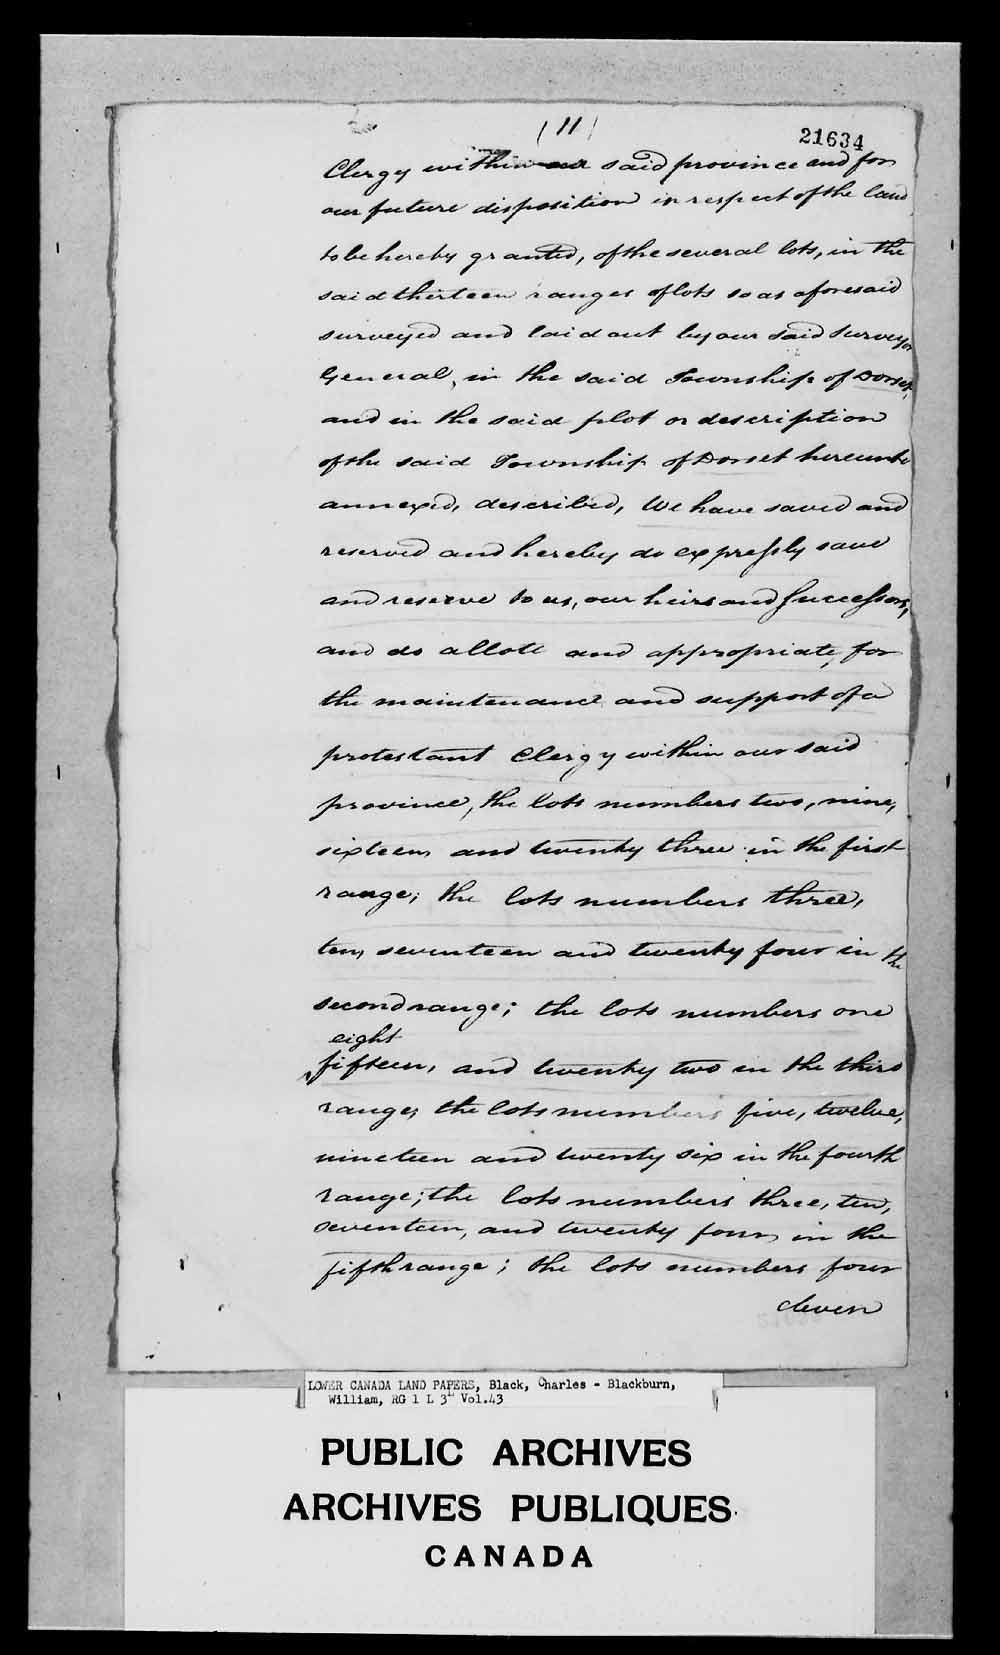 (11)
21634
Clergy within our said province and for
our future disposition in respect of the land
to be hereby granted, of the several lots, in the
said thirteen ranges of lots so as aforesaid
surveyed and laid out by our said Surveyor
General, in the said Township of Dorset,
and in the said plot or description
of the said Township of Dorset hereunto
annexed, described, We have saved and
reserved and hereby do expressly save
and reserve to us, our heirs and Successors,
and do allott and appropriate, for
the maintenance and support of a
protestant Clergy within our said
province, the lots numbers two, nine,
sixteen and twenty three in the first
range; the lots numbers three,
ten, seventeen and twenty four in the
second range; the lots numbers one
eight
fifteen, and twenty two in the third
range, the lots numbers five, twelve,
nineteen and twenty six in the fourth
range; the lots numbers three, ten,
seventeen, and twenty four, in the
fifth range; the lots numbers four
eleven
LOWER CANADA LAND PAPERS, Black, Charles - Blackburn,
William, RG 1 L 3L Vol.43
PUBLIC ARCHIVES
ARCHIVES PUBLIQUES
CANADA